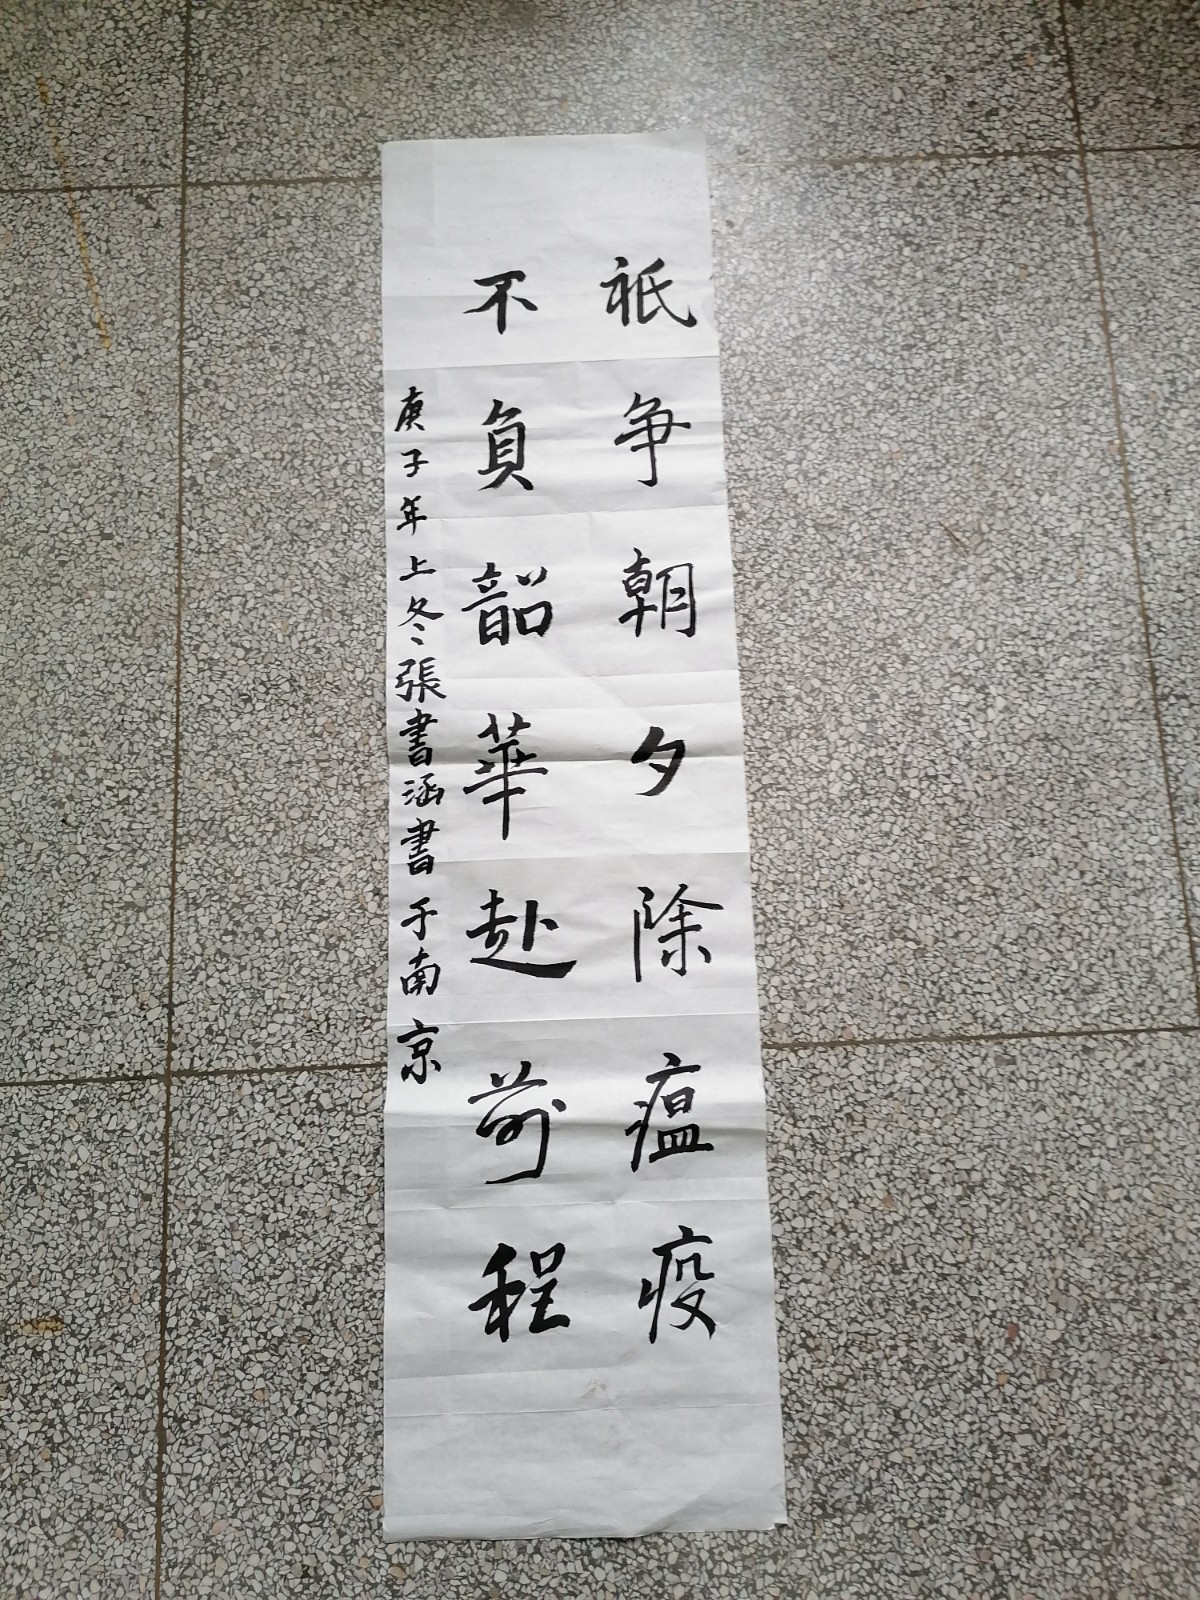 祇争朝夕除瘟疫
不負韶華赴前程
庚子年上冬張書涵書于南京